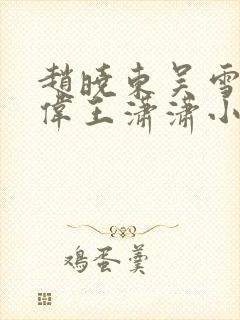 趙曉東吴雪
偉王瀟瀟小
鸡蛋羹